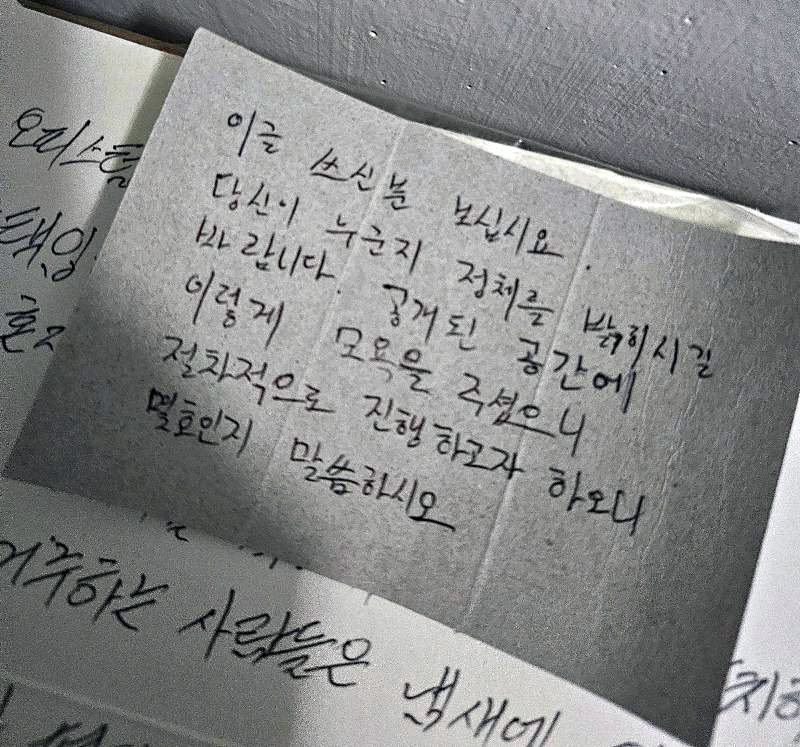 이글 쓰신분 보십시요.
당신이 누군지 정체를 밝히시길
바랍니다. 공개된 공간에
이렇게 모욕을 주셨으니
절차적으로 진행하고자 하오니
몇호인지 말씀하시오
오피스텔
택입
혼자
거주하는 사람들은 냄새에